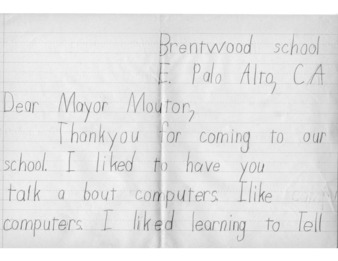 Brentwood school
E. Palo Alto, CA
Dear Mayor Mouton,
Thankyou for coming to our
school. I liked to have you
talk a bout computers. Ilike
computers. I liked learning to Tell